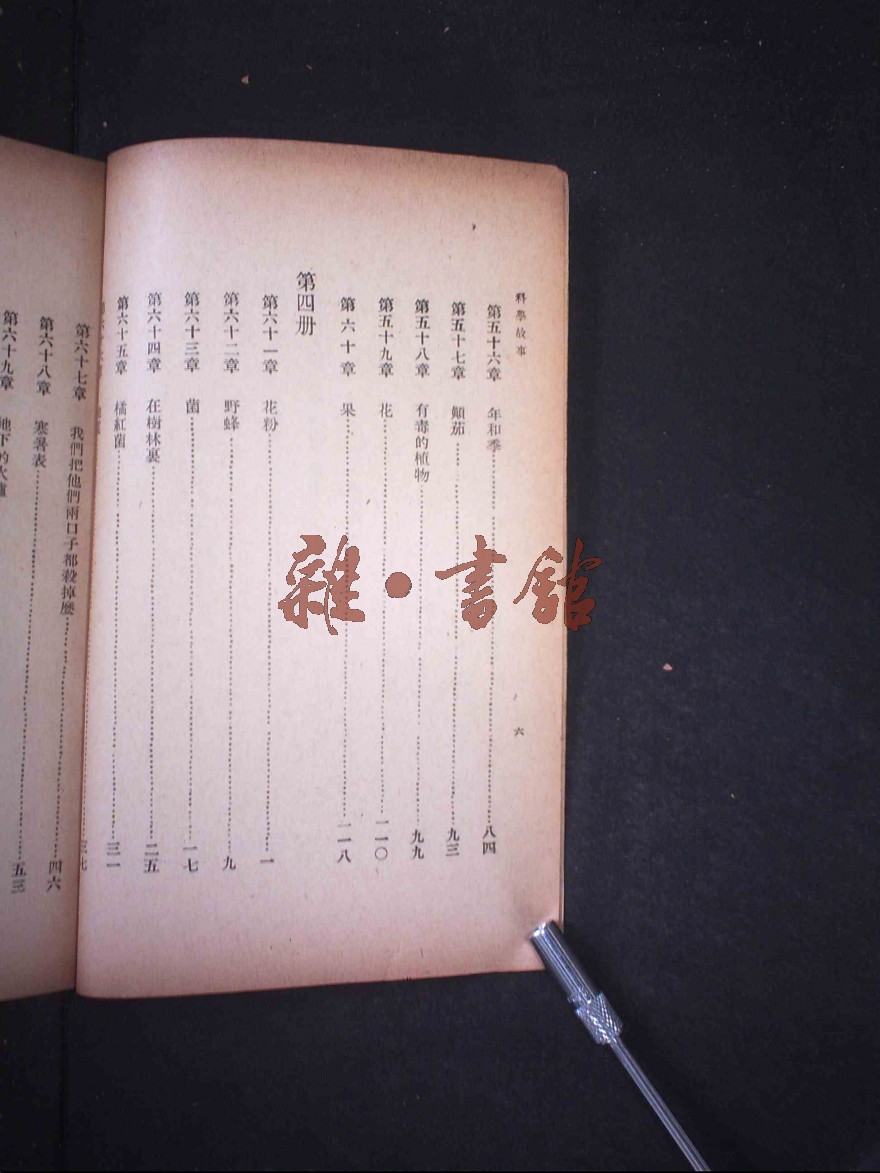 科學故事
第五十六章 年和季 八四
第五十七章 顛茄 九三
第五十八章 有毒的植物 九九
第五十九章 花 一一〇
第六十章 果 一一八
第四册
第六十一章 花粉 一
第六十二章 野蜂 九
第六十三章 菌 一七
第六十四章 在樹林裏 二五
第六十五章 橘紅菌 三一
六
第六十七章 我們把他們兩口子都殺掉麽 四六
第六十八章 寒暑表 五三
第六十九章 地下的火爐
雜·書館